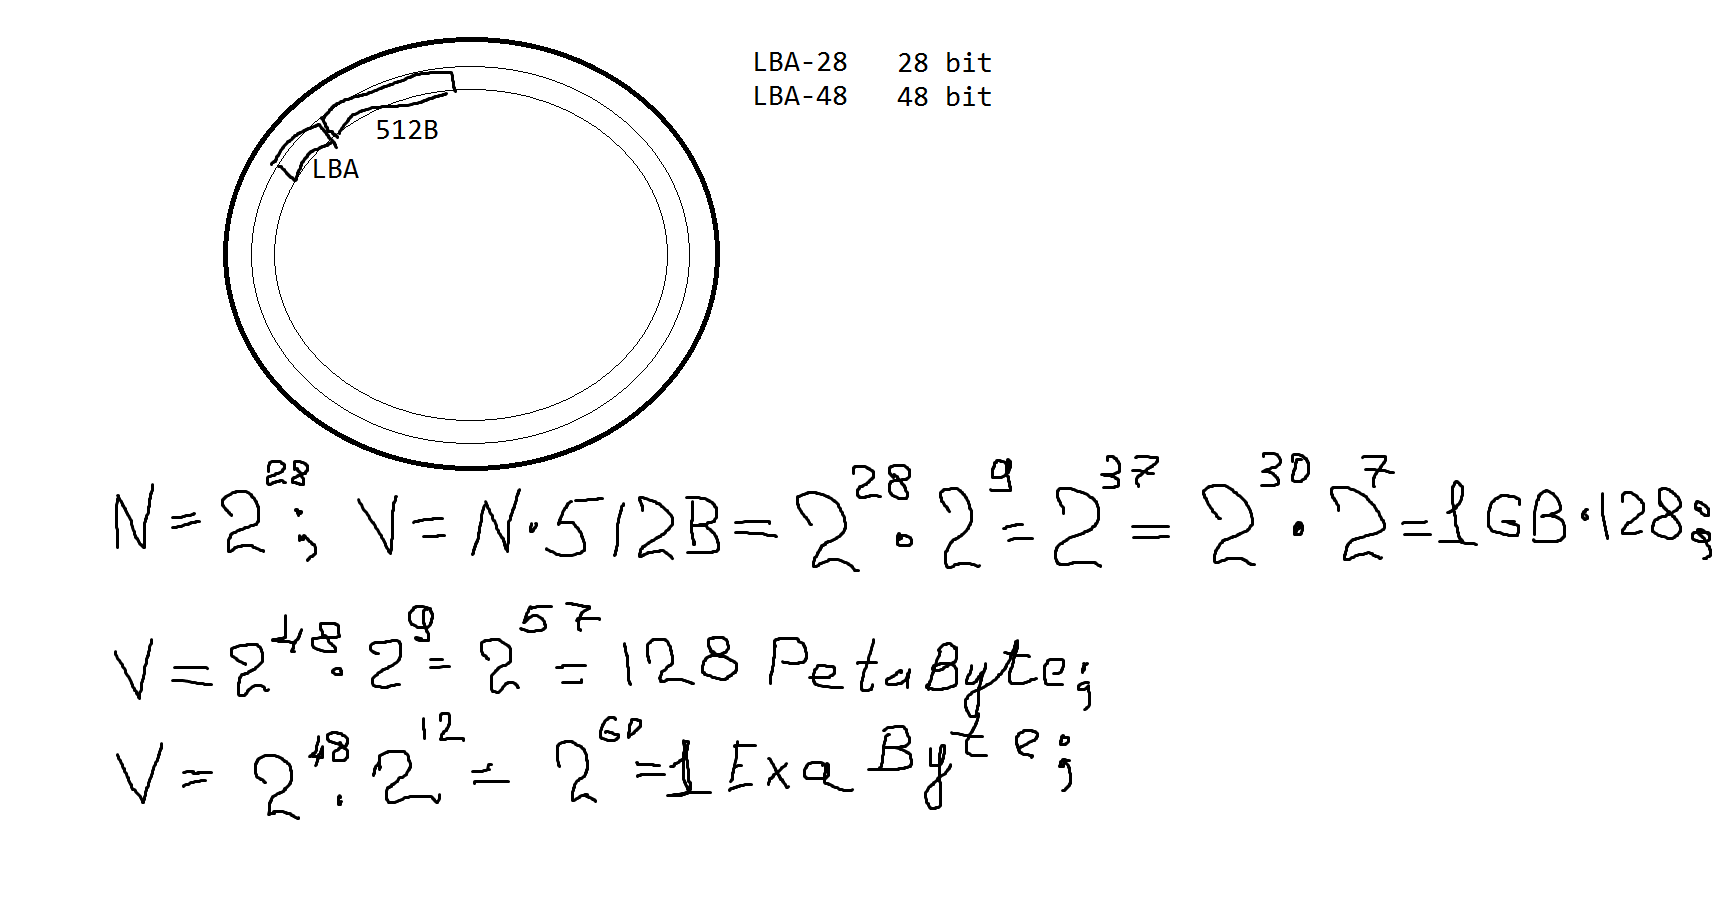 LBA-28 28 bit
LBA-48 48 bit
512B
LBA
N = 2^28; V = N·512B = 2^28 · 2^9 = 2^37 = 2^30 · 2^7 = 1GB·128;
V = 2^48 · 2^9 = 2^57 = 128 PetaByte;
V = 2^48 · 2^12 = 2^60 = 1 ExaByte;